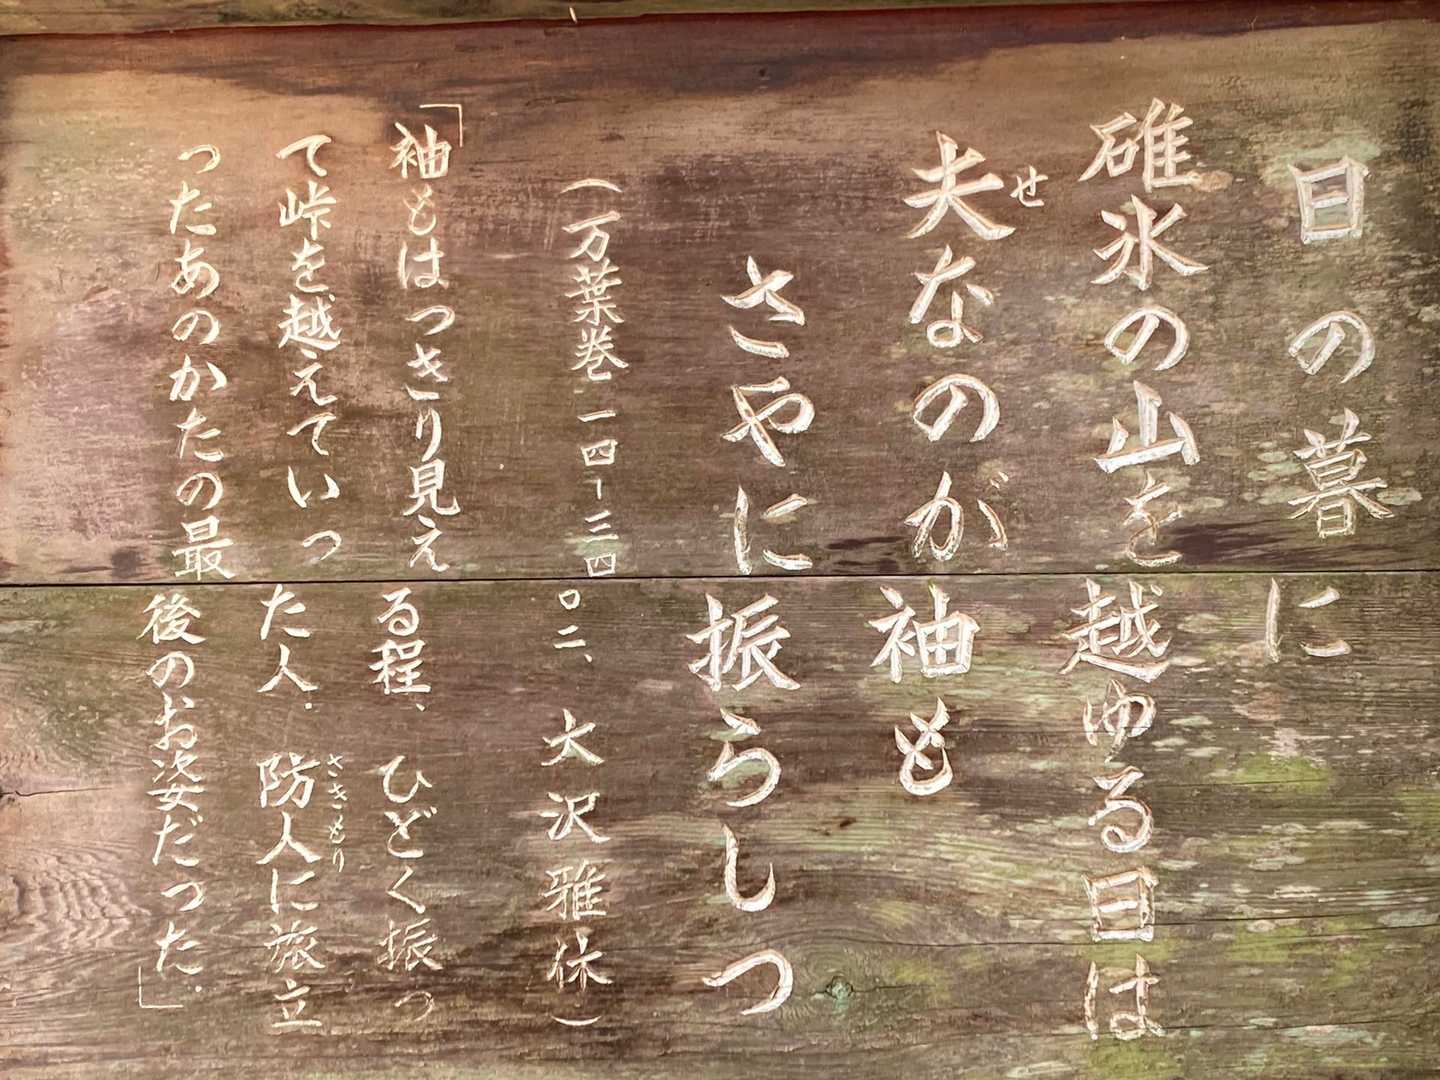 日の暮に
碓氷の山を越ゆる日は
夫なのが袖も
せ
さやに振らしつ
(万葉巻一四-三四〇二、大沢雅休)
「袖もはつきり見える程、ひどく振っ
て峠を越えていった人.防人に旅立
さきもり
ったあのかたの最後のお姿だつた.」